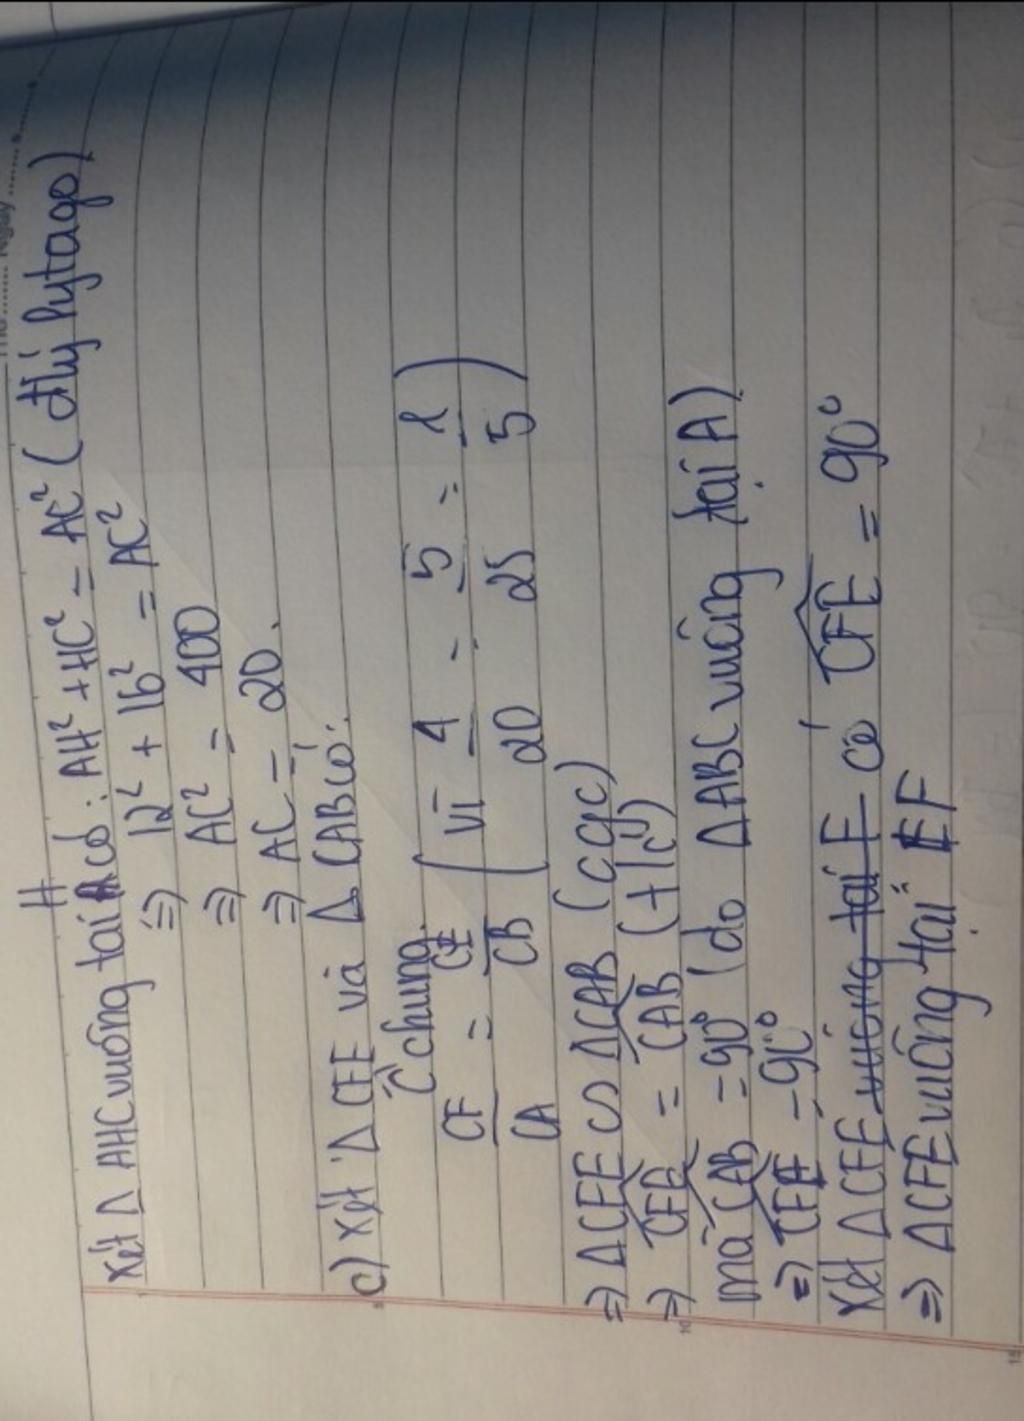 Thứ ........ Ngày ........
H
Xét Δ AHC vuông tại có: AH² + HC² = AC² (đlý Pytago)
=) 12² + 16² = AC²
=) AC² = 400
=) AC = 20.
c) Xét Δ CFE và Δ CAB có:
Ĉ chung
CF/CA = CE/CB (vì 4/20 = 5/25 = 1/5)
=) ΔCFE ∽ ΔCAB (cgc)
=) CFE = CAB (t/c)
mà CAB = 90° (do ΔABC vuông tại A)
=) CFE = 90°
Xét ΔCFE vuông tại F có CFE = 90°
=) ΔCFE vuông tại F